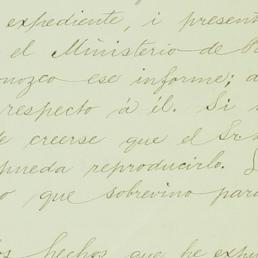 expediente, i present
el Ministerio de R
onozco ese informe; a
respecto á él. Si
de creerse que el Sr.
pueda reproducirlo. S
o que sobrevino para
los hechos que he expu